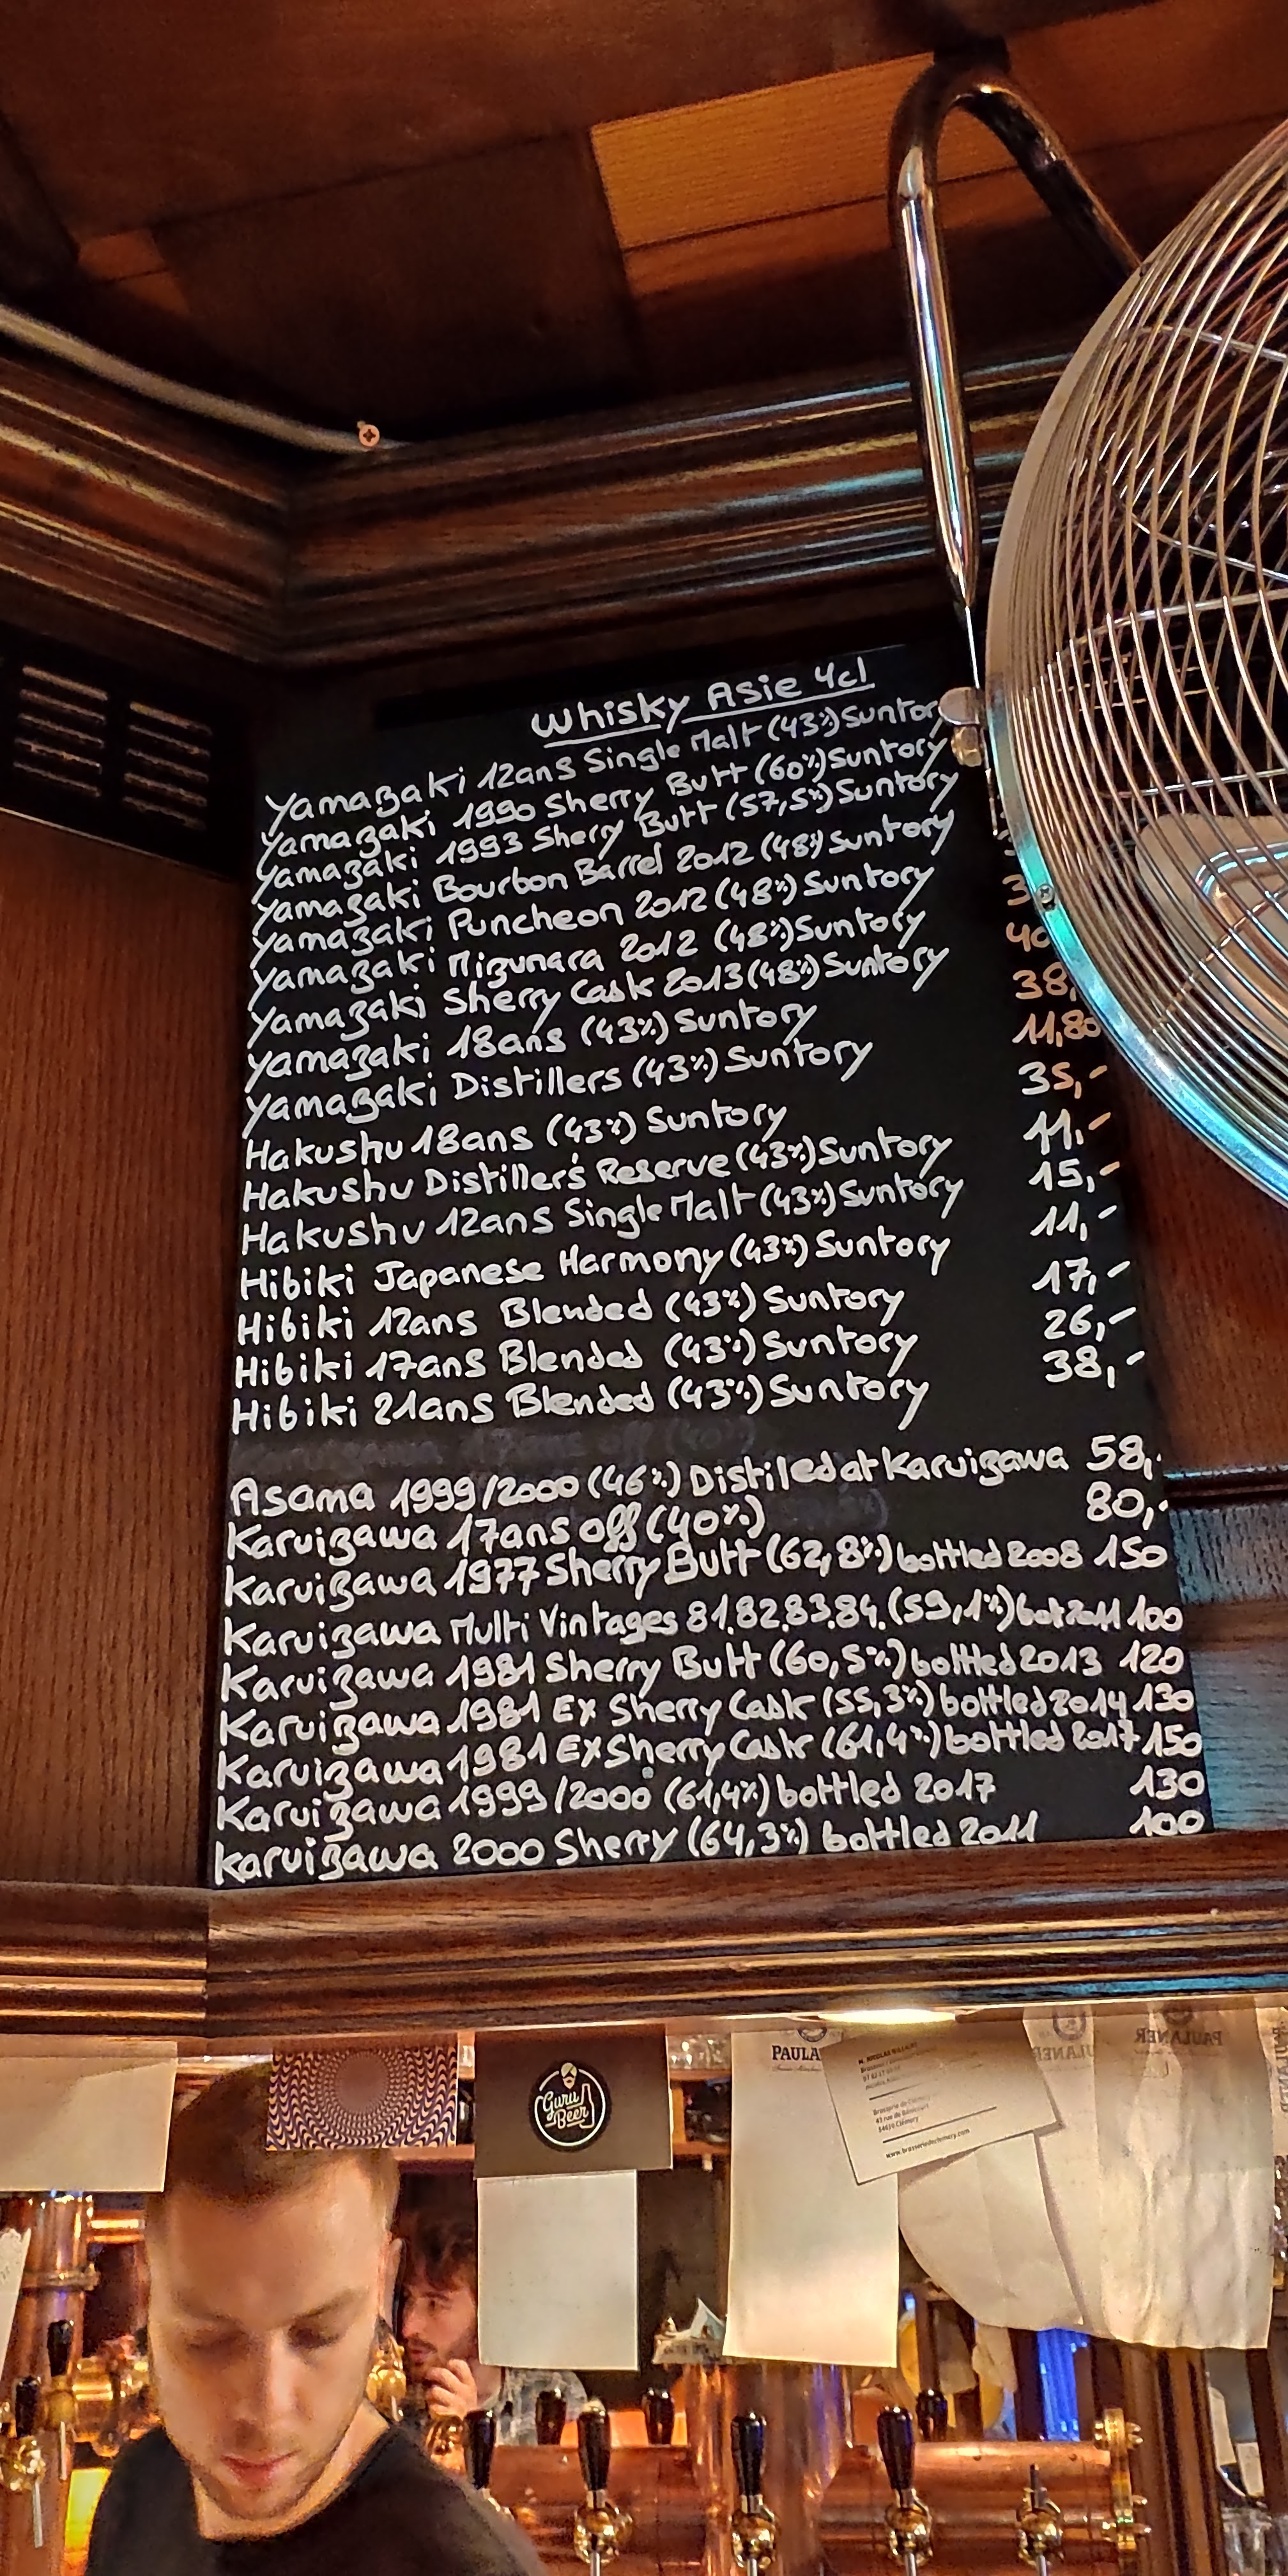 Whisky Asie 4cl
Yamazaki 12ans Single Malt (43%) Suntory
Yamazaki 1990 Sherry Butt (60%) Suntory
Yamazaki 1993 Sherry Butt (57,5%) Suntory
Yamazaki Bourbon Barrel 2012 (48%) Suntory
Yamazaki Puncheon 2012 (48%) Suntory
Yamazaki Mizunara 2012 (48%) Suntory
Yamazaki Sherry Cask 2013 (48%) Suntory 40
Yamazaki 18ans (43%) Suntory 38,
Yamazaki Distillers (43%) Suntory 11,80
Hakushu 18ans (43%) Suntory 35,-
Hakushu Distiller's Reserve (43%) Suntory 11,-
Hakushu 12ans Single Malt (43%) Suntory 15,-
Hibiki Japanese Harmony (43%) Suntory 11,-
Hibiki 12ans Blended (43%) Suntory 17,-
Hibiki 17ans Blended (43%) Suntory 26,-
Hibiki 21ans Blended (43%) Suntory 38,-
Asama 1999/2000 (46%) Distiled at Karuizawa 58,-
Karuizawa 17ans off (40%) 80,-
Karuizawa 1977 Sherry Butt (62,8%) bottled 2008 150
Karuizawa Multi Vintages 81.82.83.84. (59,1%) bot 2011 100
Karuizawa 1981 Sherry Butt (60,5%) bottled 2013 120
Karuizawa 1981 Ex Sherry Cask (55,3%) bottled 2014 130
Karuizawa 1981 Ex Sherry Cask (61,4%) bottled 2017 150
Karuizawa 1999/2000 (61,4%) bottled 2017 130
Karuizawa 2000 Sherry (64,3%) bottled 2011 100
Guru Beer
PAULA
PAULANER